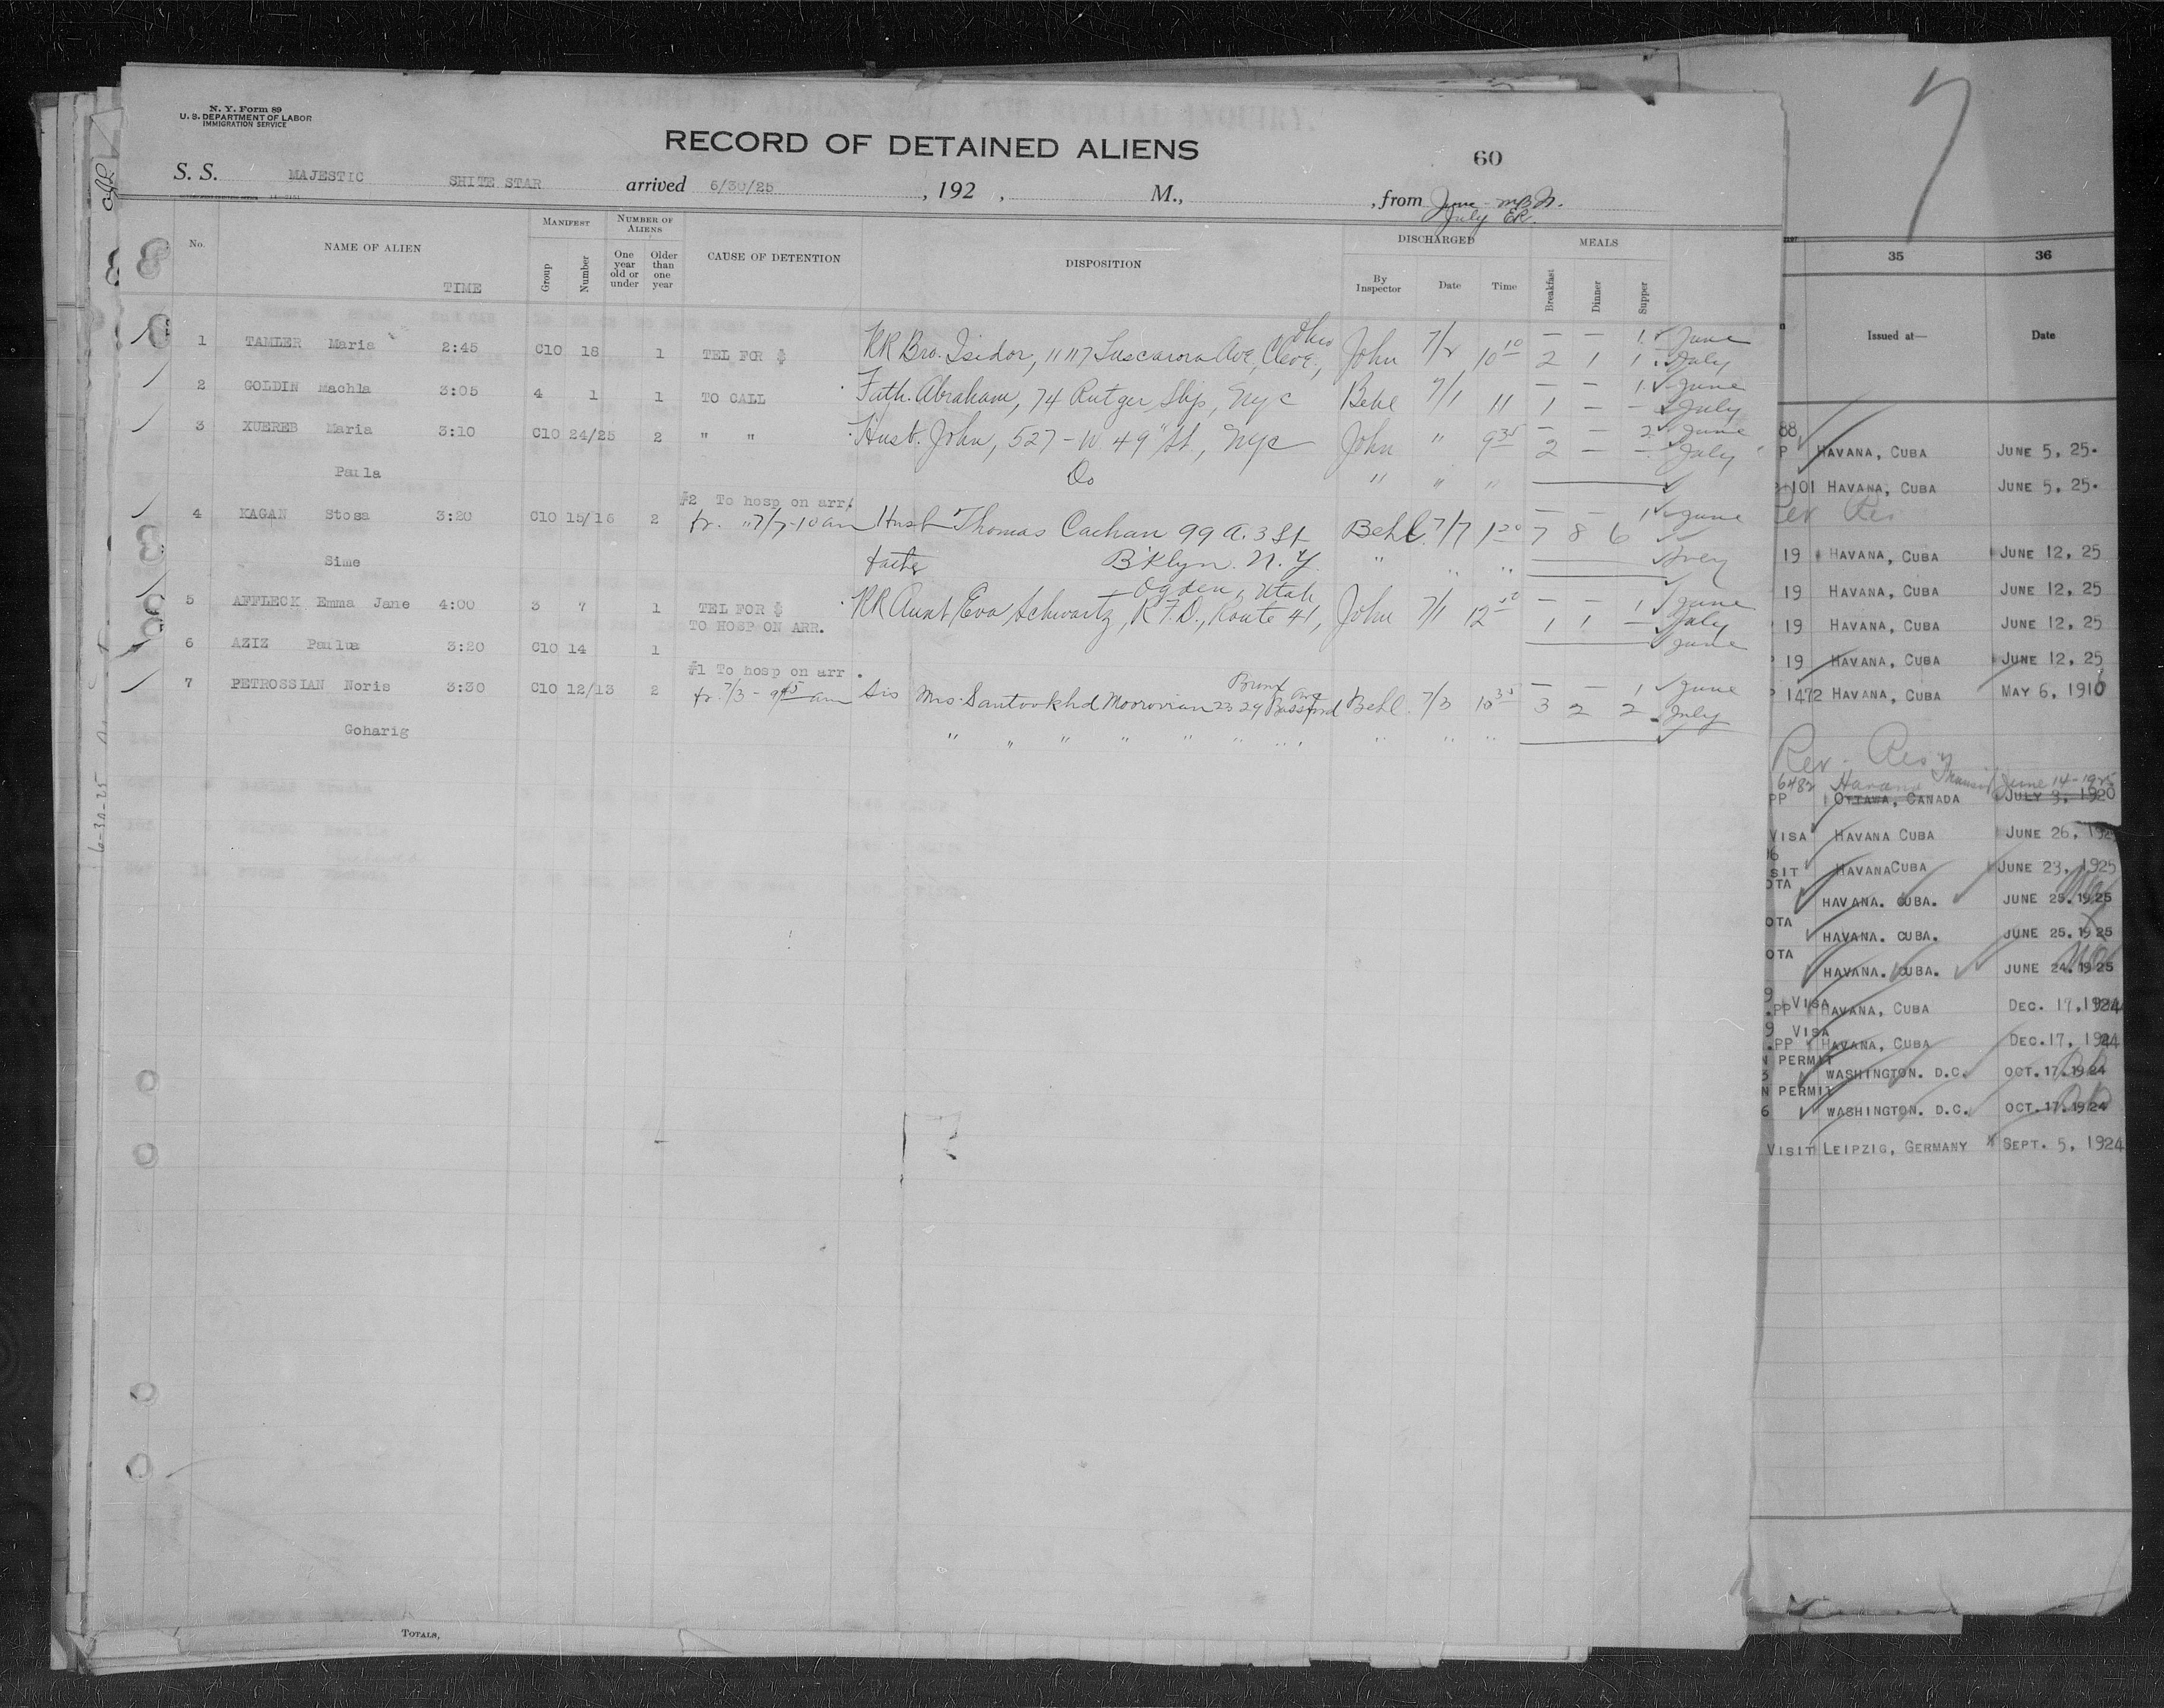 N. Y. Form 89
U. S. DEPARTMENT OF LABOR
IMMIGRATION SERVICE
RECORD OF DETAINED ALIENS
60
S. S. MAJESTIC SHITE STAR arrived 6/30/25, 192 , M., , from June - MBN.
July ER.
No. NAME OF ALIEN TIME MANIFEST Group Number NUMBER OF ALIENS One year old or under Older than one year CAUSE OF DETENTION DISPOSITION DISCHARGED By Inspector Date Time MEALS Breakfast Dinner Supper
1 TAMLER Maria 2:45 C10 18 1 TEL FOR $ RR Bro. Isidor, 11117 Tuscarora Ave, Cleve, Ohio John 7/2 10 10 — — 1 June
2 1 1 July
2 GOLDIN Machla 3:05 4 1 1 TO CALL Fath. Abraham, 74 Rutger Slip, NYC Behl 7/1 11 — — 1 June
1 — — July
3 XUEREB Maria 3:10 C10 24/25 2 " " Husb. John, 527 - W 49" St., NYC John " 9 35 — — 2 June
2 — — July
Paula Do " " "
4 KAGAN Stosa 3:20 C10 15/16 2 #2 To hosp on arr.
fr. " 7/7 - 10 am Husb Thomas Cachan 99 A. 3 St Behl 7/7 1 20 — — 1 June
7 8 6
Sime father B'klyn. N.Y. " " "
5 AFFLECK Emma Jane 4:00 3 7 1 TEL FOR $ RR Aunt, Eva Schwartz, R.F.D., Route 41, Ogden, Utah John 7/1 12 — — 1 June
1 1 — July
6 AZIZ Paulus 3:20 C10 14 1 TO HOSP ON ARR. June
7 PETROSSIAN Noris 3:30 C10 12/13 2 #1 To hosp on arr.
fr. 7/3 - 9 45 am Sis Mrs. Santookhd Moorovian 2329 Bassford Ave Bronx Behl. 7/3 10 35 — — 1 June
3 2 2 July
Goharig " " " " " " " " " "
TOTALS,
6-30-25
7
35 36
Issued at— Date
88
P HAVANA, CUBA JUNE 5, 25.
101 HAVANA, CUBA JUNE 5, 25.
Rev Res
19 HAVANA, CUBA JUNE 12, 25
19 HAVANA, CUBA JUNE 12, 25
19 HAVANA, CUBA JUNE 12, 25
19 HAVANA, CUBA JUNE 12, 25
1472 HAVANA, CUBA MAY 6, 1910
Rev. Res
6482 Havana Transit June 14-1925
PP OTTAWA, CANADA JULY 3, 1920
VISA HAVANA CUBA JUNE 26, 192
SIT HAVANA CUBA JUNE 23, 1925
OTA HAVANA. CUBA. JUNE 25.1925
OTA HAVANA. CUBA. JUNE 25.1925
OTA HAVANA. CUBA. JUNE 24.1925
9 VISA
.PP HAVANA, CUBA DEC. 17, 1924
9 VISA
.PP HAVANA, CUBA DEC.17, 1924
N PERMIT
3 WASHINGTON. D.C. OCT.17.1924
N PERMIT
6 WASHINGTON. D.C. OCT.17.1924
VISIT LEIPZIG, GERMANY SEPT. 5, 1924